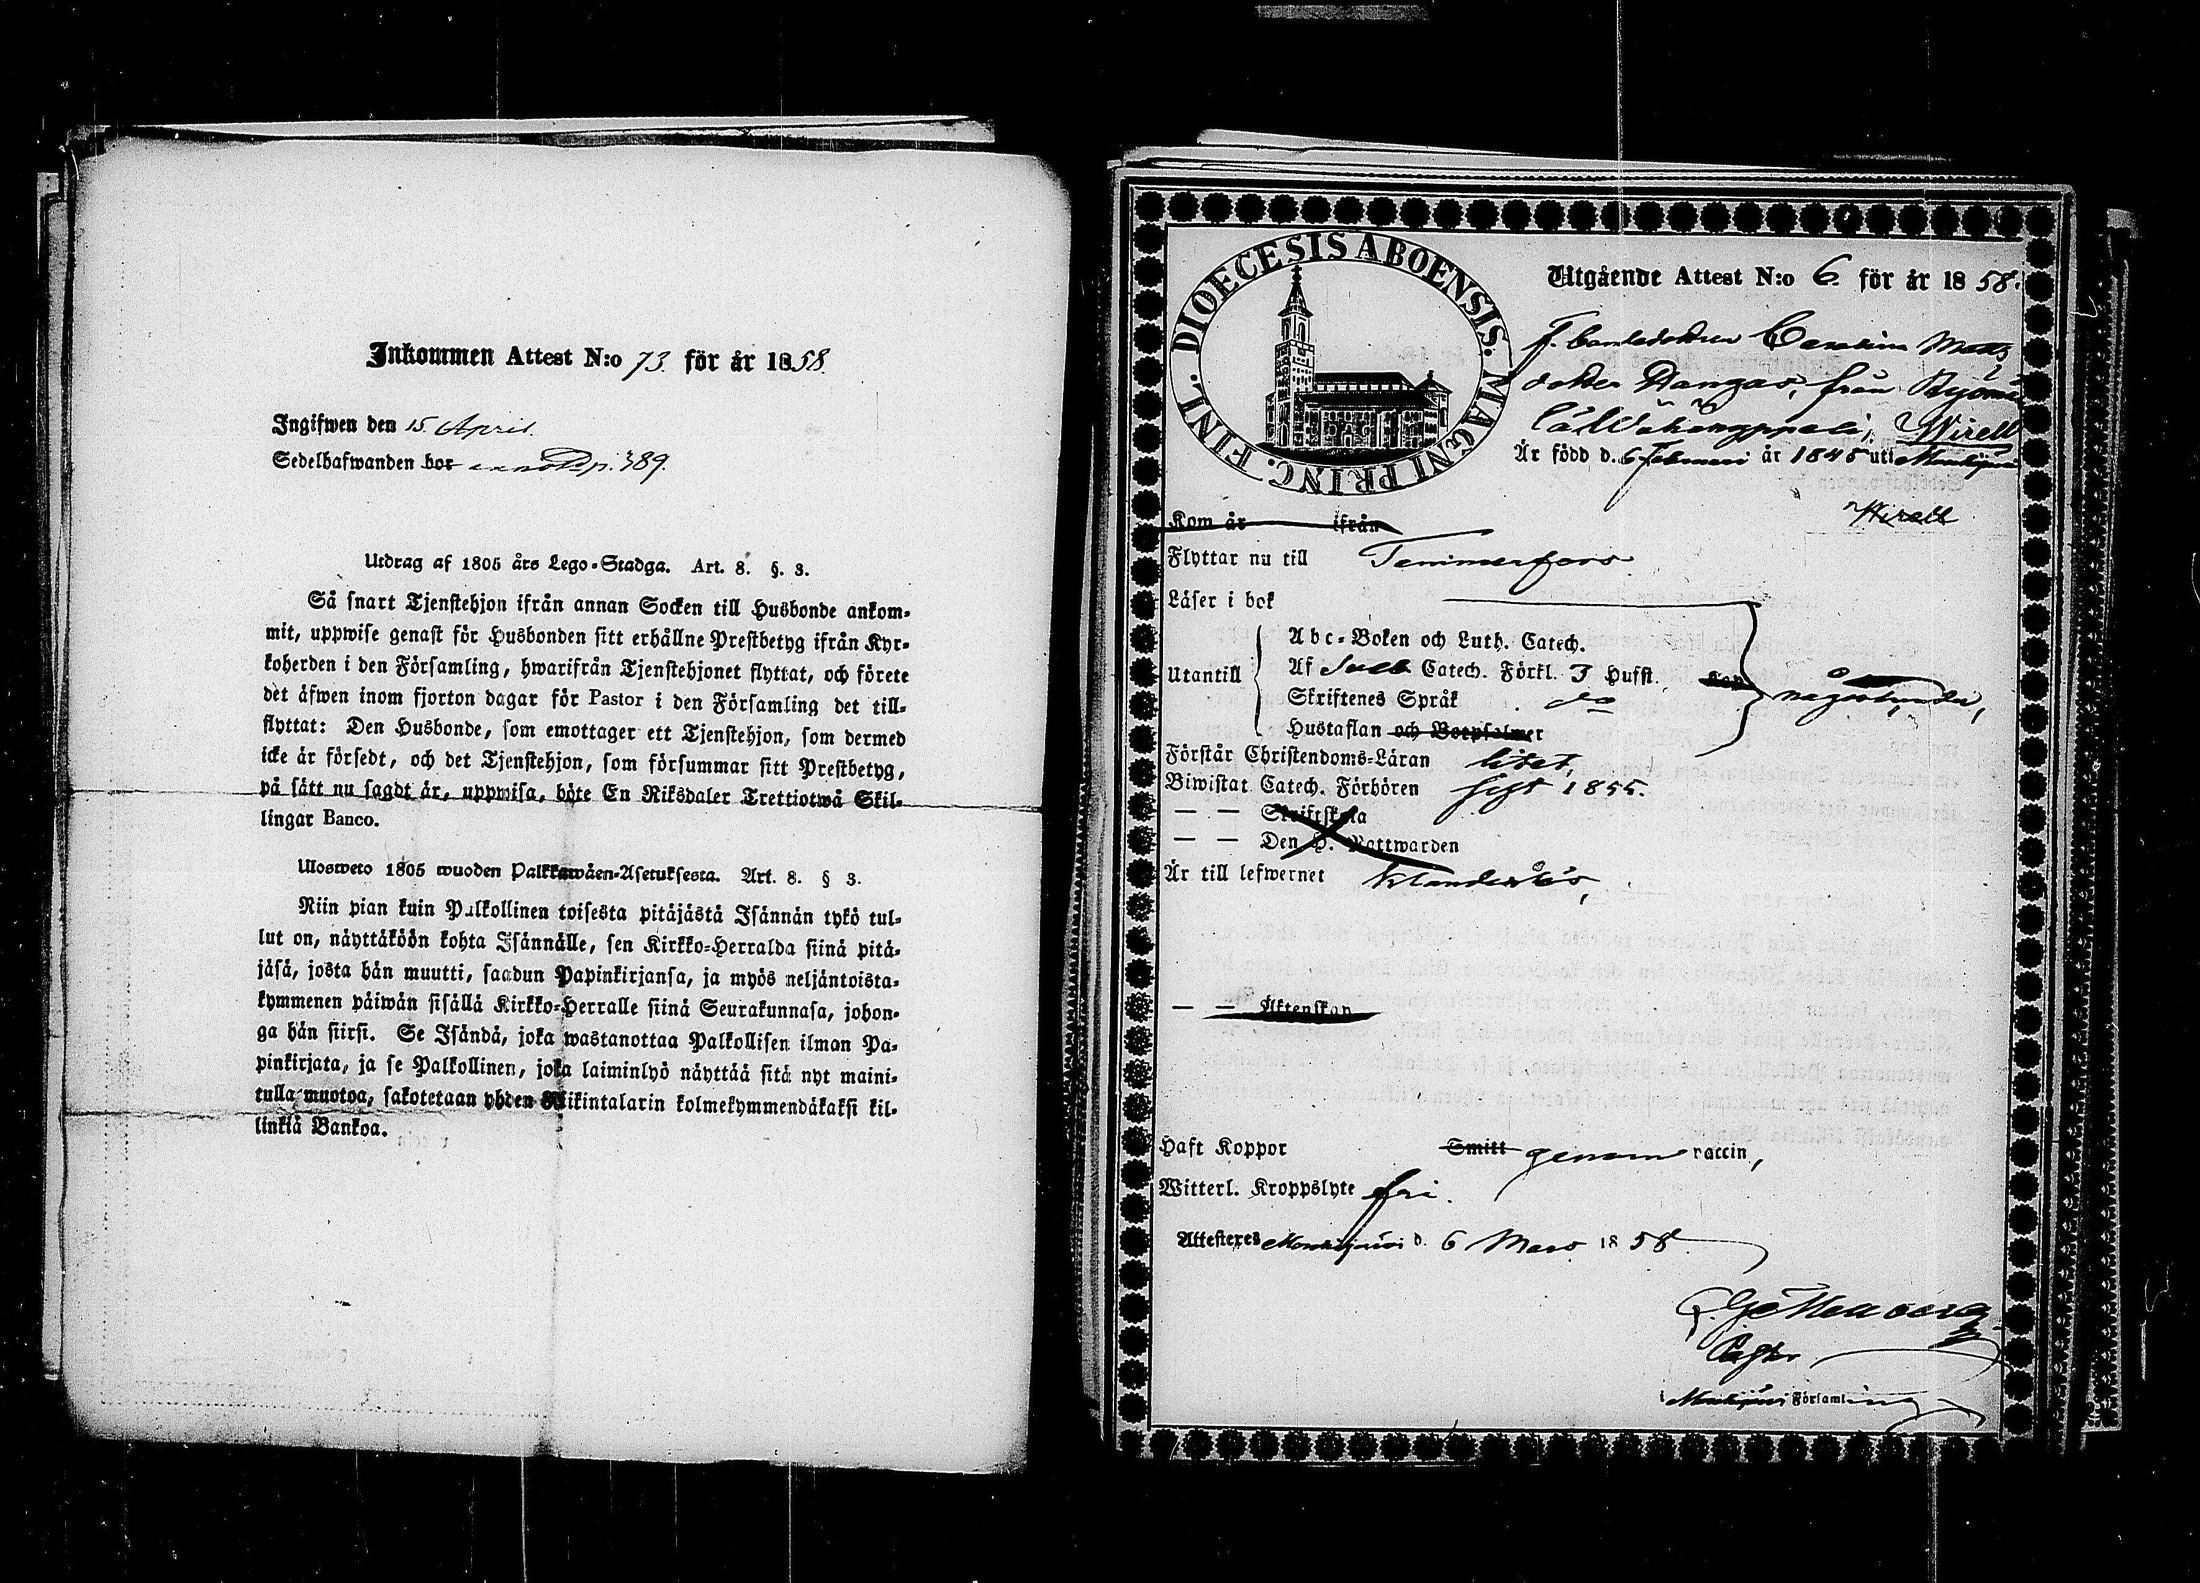 Inkommen Attest N:o 73. för år 1858.
Ingifwen den 15 April.
Sedelhafwanden bor p. 389.
Utdrag af 1805 års Lego-Stadga. Art. 8. §. 3.
Så snart Tjenstehjon ifrån annan Socken till Husbonde ankom-
mit, uppwise genast för Husbonden sitt erhållne Prestbetyg ifrån Kyr-
koherden i den Församling, hwarifrån Tjenstehjonet flyttat, och förete
det äfwen inom fjorton dagar för Pastor i den Församling det till-
flyttat: Den Husbonde, som emottager ett Tjenstehjon, som dermed
icke är försedt, och det Tjenstehjon, som försummar sitt Prestbetyg,
på sätt nu sagdt är, uppwisa, böte En Riksdaler Trettiotwå Skil-
lingar Banco.
Ulosweto 1805 wuoden Palkkawäen-Asetuksesta. Art. 8. § 3.
Niin pian kuin Palkollinen toisesta pitäjästä Isännän tykö tul-
lut on, näyttäköön kohta Isännälle, sen Kirkko-Herralda siinä pitä-
jäsä, josta hän muutti, saadun Papinkirjansa, ja myös neljäntoista-
kymmenen päiwän sisällä Kirkko-Herralle siinä Seurakunnasa, johon-
ga hän siirsi. Se Isändä, joka wastanottaa Palkollisen ilman Pa-
pinkirjata, ja se Palkollinen, joka laiminlyö näyttää sitä nyt maini-
tulla muotoa, sakotetaan yhden Riikintalarin kolmekymmendäkaksi kil-
linkiä Bankoa.
DIOECESIS ABOENSIS. MAGNI PRINC. FINL.
Utgående Attest N:o 6. för år 1858.
F. Carolina Matts
dotter från
Wirell
Är född d. 6 Februari år 1845 uti Mouhijärvi
Wirell
Kom år ifrån
Flyttar nu till Tammerfors
Läser i bok
Abc-Boken och Luth. Catech.
Utantill Af Sveb Catech. Förkl. 3 Hufst. någorlunda,
Skriftenes Språk do
Hustaflan och Botpsalmer
Förstår Christendoms-Läran litet,
Biwistat Catech. Förhören sist 1855.
— — Skriftskola
— — Den H. Nattwarden
Är till lefwernet klanderlös,
— — Äktenskap
Haft Koppor Smitt genom vaccin,
Witterl. Kroppslyte fri.
Attesteres Mouhijärvi d. 6 Mars 1858
Pastor
i Mouhijärvi Församling